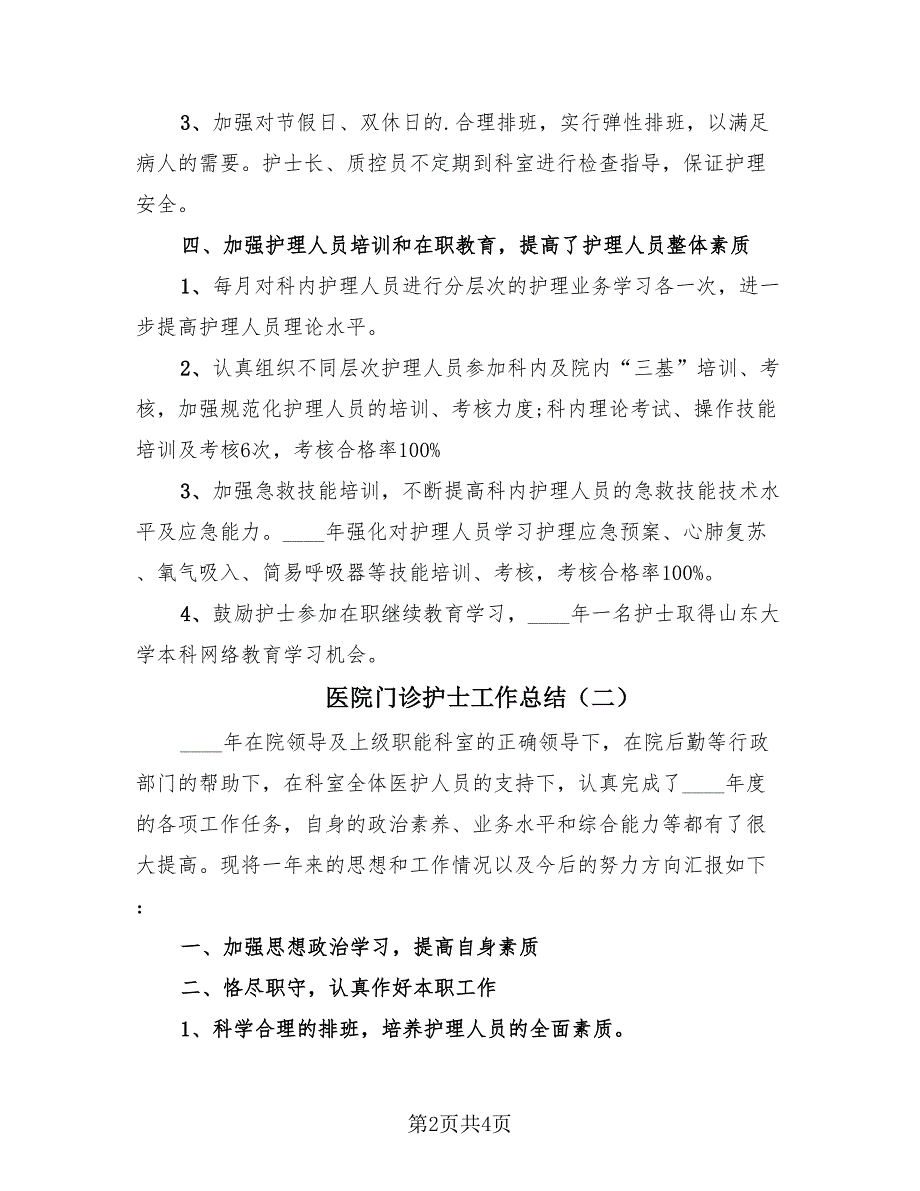 3、加强对节假日、双休日的.合理排班，实行弹性排班，以满足
病人的需要。护士长、质控员不定期到科室进行检查指导，保证护理
安全。
四、加强护理人员培训和在职教育，提高了护理人员整体素质
1、每月对科内护理人员进行分层次的护理业务学习各一次，进一
步提高护理人员理论水平。
2、认真组织不同层次护理人员参加科内及院内“三基”培训、考
核，加强规范化护理人员的培训、考核力度;科内理论考试、操作技能
培训及考核6次，考核合格率100%
3、加强急救技能培训，不断提高科内护理人员的急救技能技术水
平及应急能力。____年强化对护理人员学习护理应急预案、心肺复苏
、氧气吸入、简易呼吸器等技能培训、考核，考核合格率100%。
4、鼓励护士参加在职继续教育学习，____年一名护士取得山东大
学本科网络教育学习机会。
医院门诊护士工作总结（二）
____年在院领导及上级职能科室的正确领导下，在院后勤等行政
部门的帮助下，在科室全体医护人员的支持下，认真完成了____年度
的各项工作任务，自身的政治素养、业务水平和综合能力等都有了很
大提高。现将一年来的思想和工作情况以及今后的努力方向汇报如下
：
一、加强思想政治学习，提高自身素质
二、恪尽职守，认真作好本职工作
1、科学合理的排班，培养护理人员的全面素质。
第2页共4页